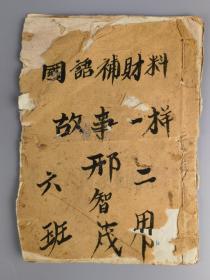 國語補財料
故事一样
二用
邢智茂
六班